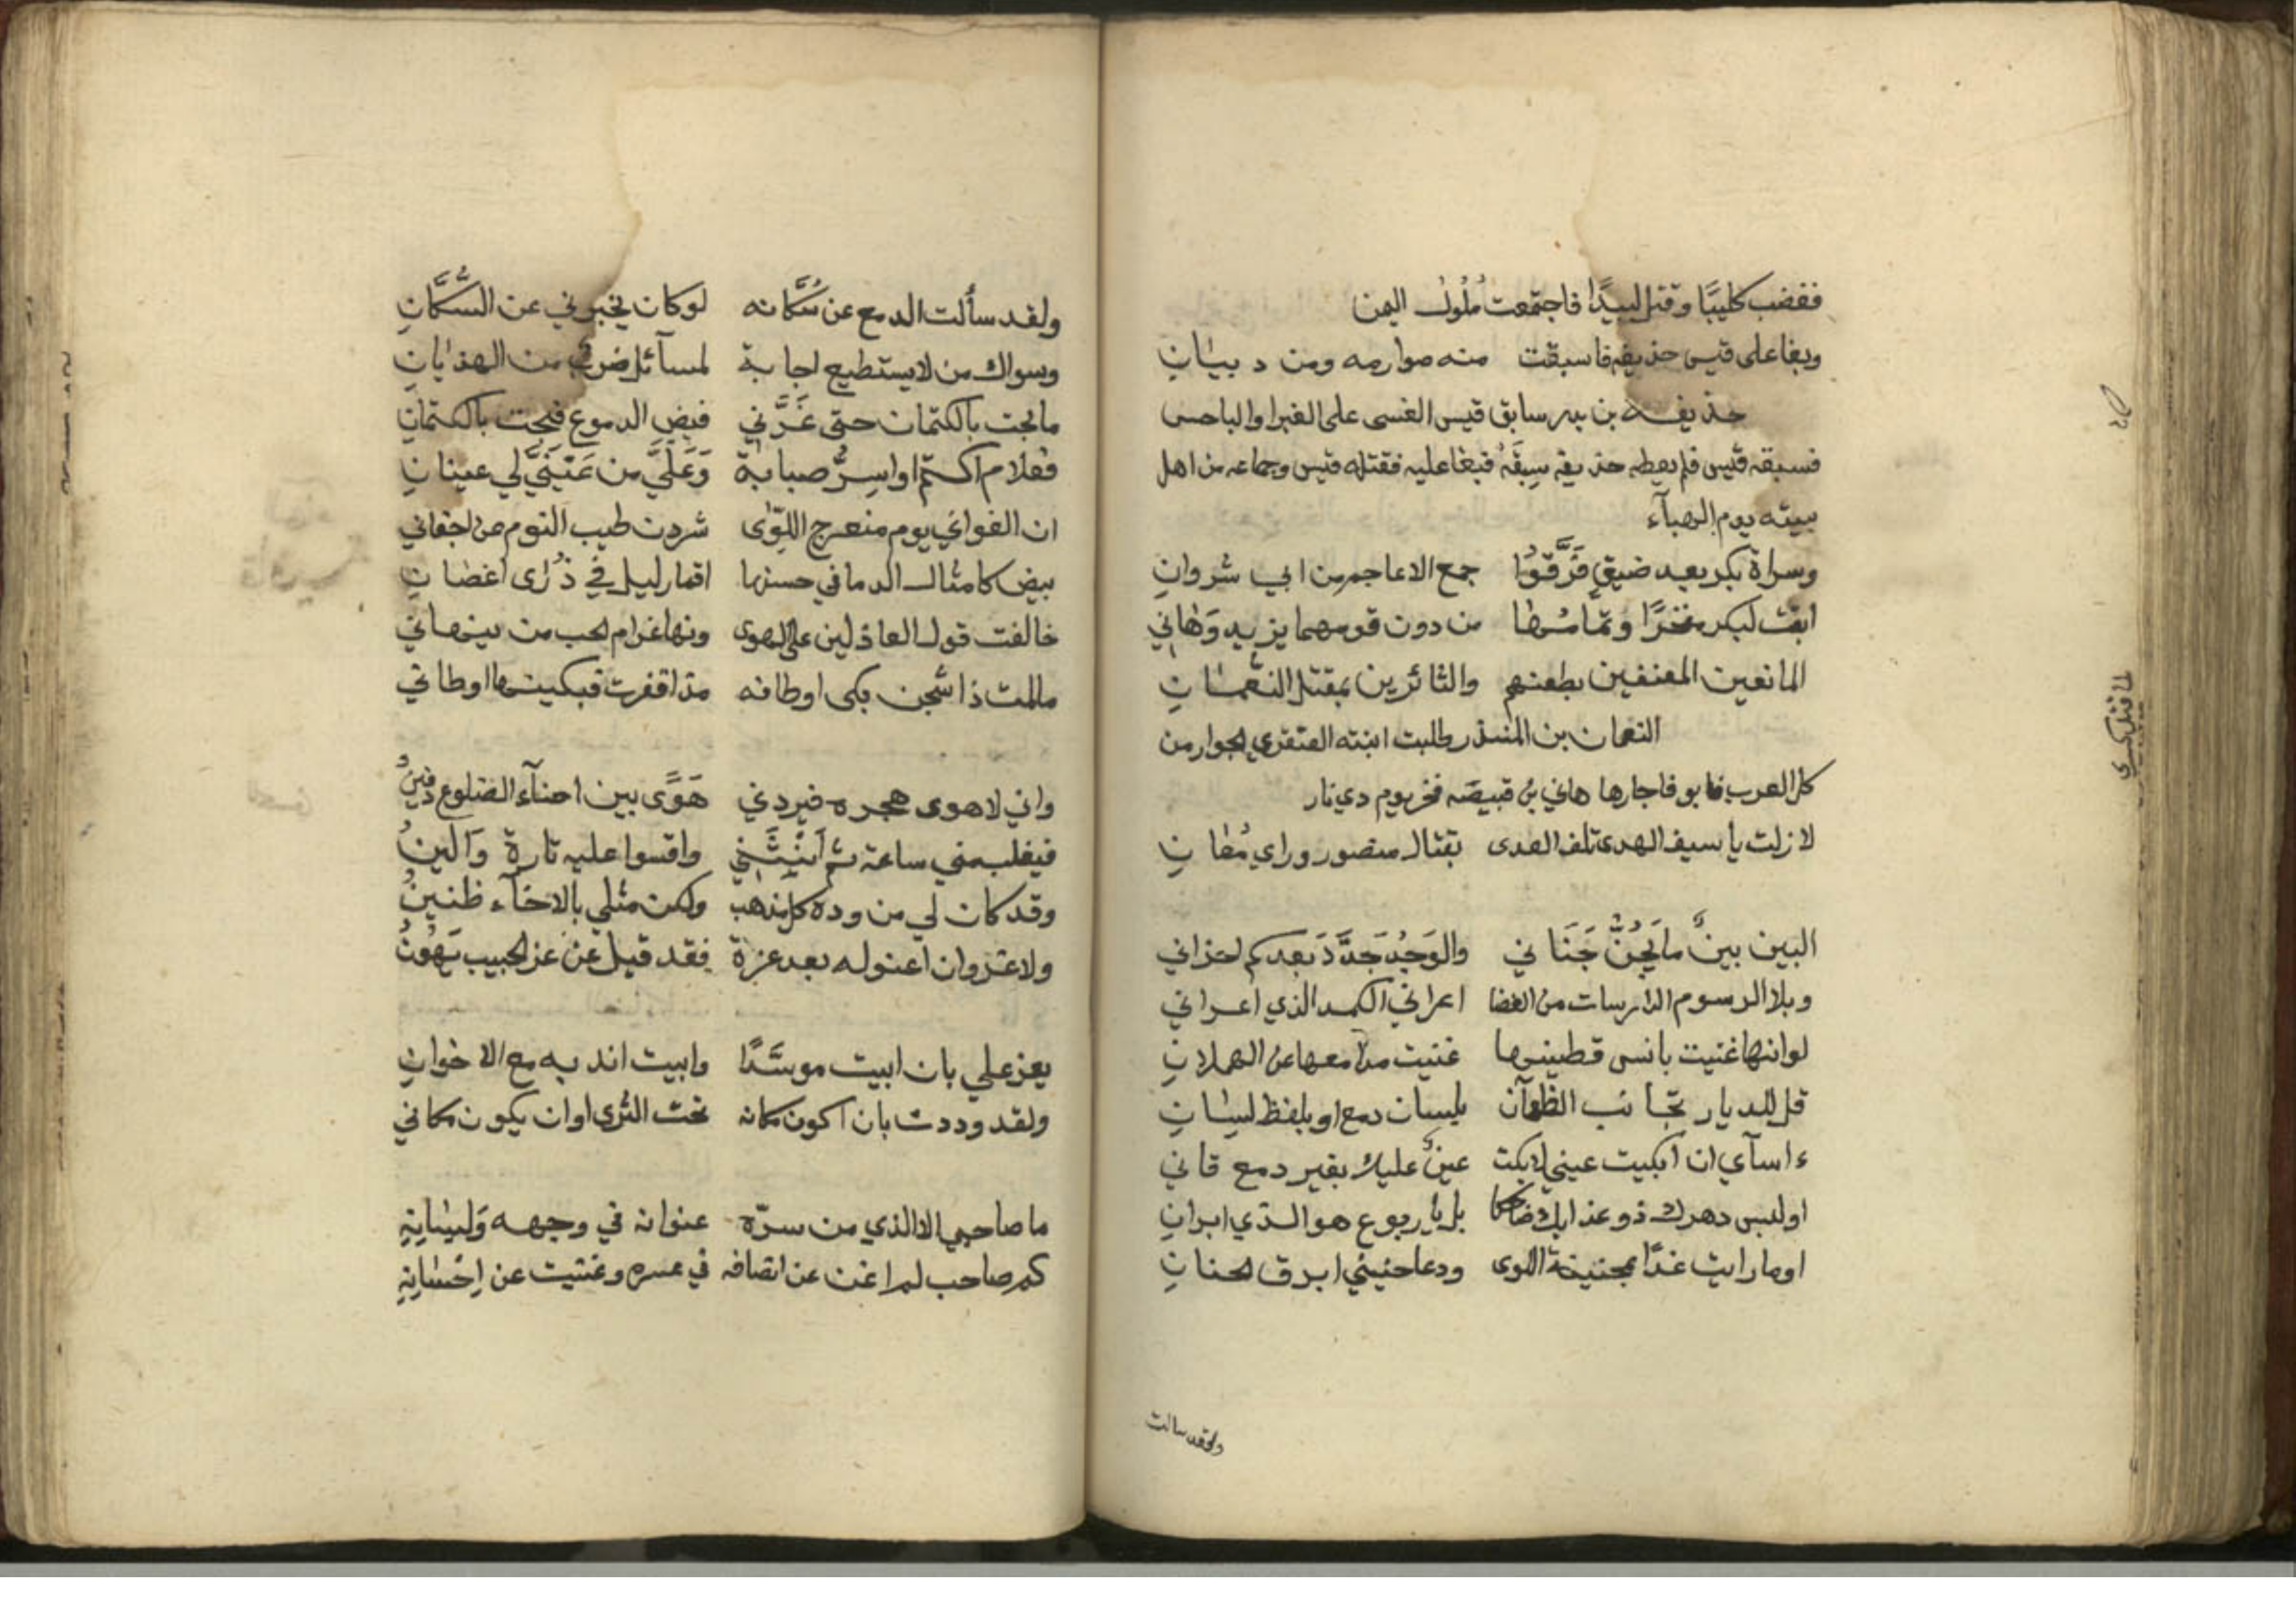 فغضب كليبًا وقتل لبيدًا فاجتمعت مُلُوك اليمن
وبغا على قيس حذيفه فاسبقت منه صوارمه ومن دبيان
حذيفـه بن بدر سابق قيس العنسى على الغبرا والباحس
فسبقه قيس فلم يعطه حذيفه سبقَهُ فبغا عليه فقتله قيس وجماعه من اهل
بيته يوم الهبآء
وسراة بكر بعد ضيق فَرَّقوُا جمع الاعاجم من ابي شروانِ
ابقت لبكر مفخرًا وتماسُها من دون قومهما يزيد وَهاني
المانعين المعنفين بطعنهم والثائرين بمقتل النعمانِ
النعمان بن المنذر طلبت ابنته العنقرى الجوار من
كل العرب فابو فاجارها هاني بن قبيصه فخر يوم دي نار
لا زلت يا سيف الهدى تلف العدى بقتال منصور وراي مُعانِ
البين بينٌ ما يُجنُّ جَنَاني والوَجدُ جَدَّدَ بَعدكم احزاني
وبلا الرسوم الدارسات من الغضا اعراني الكمد الذي اعراني
لو انها غنيت بانسى قطينها غنيت مدامعها عن الهملانِ
قل للديار بجانب الظعآن بلسان دمع او بلفظ لسانِ
ءاسآي ان ابكيت عيني لا بكت عينٌ عليك بغير دمع قاني
او لبس دهرك ذو عذابك ضاحكا بل يا ربوع هو الذي ابرانِ
او ما رايت غدًا بجنينة اللوى ودعا حنيني ابرق الحنانِ
ولقد سالت
ولقد سألت الدمع عن سُكَّانه لو كان يخبروني عن السُّكَّانِ
وسواك من لا يستطيع اجابة لمسآئل ضرب من الهذيانِ
ما بحت بالكتمان حتى غَرَّني فيض الدموع فبحت بالكتمانِ
فعلام اكتم او اسِرُّ صبابة وَعَلَيَّ من عَيْنَيَّ لي عينانِ
ان الغواني يوم منعرج اللِوّى شردن طيب النوم من اجفاني
بيض كامثال الدما في حسنها اقمار ليل في ذُرى اغصانِ
خالفت قول العاذلين على الهوى ونها غرام الحب من ينهاني
ما لمت ذا شجن بكى اوطانه مذ اقفرت فبكيتها اوطاني
واني لاهوى هجره فيردني هَوًى بين احنآء الضلوع دفينُ
فيغلب مني ساعة ثم اَنْثَني واقسوا عليه تارة وَالينُ
وقد كان لي من وده كل مذهب ولكن مثلي بالاخآء ظنينُ
ولا غرو ان اعنو له بعد عزة فقد قيل عن عز الحبيب يَهُونُ
يعز علي بان ابيت موسَّدًا وابيت اندبه مع الاخوانِ
ولقد وددت بان اكون مكانه تحت الثرى او ان يكون مكاني
ما صاحبي الا الذي من سرّه عنوانه في وجهه وَلسَانِهِ
كم صاحب لم اغن عن انصافه في عسره وغنيت عن اِحْسَانِهِ